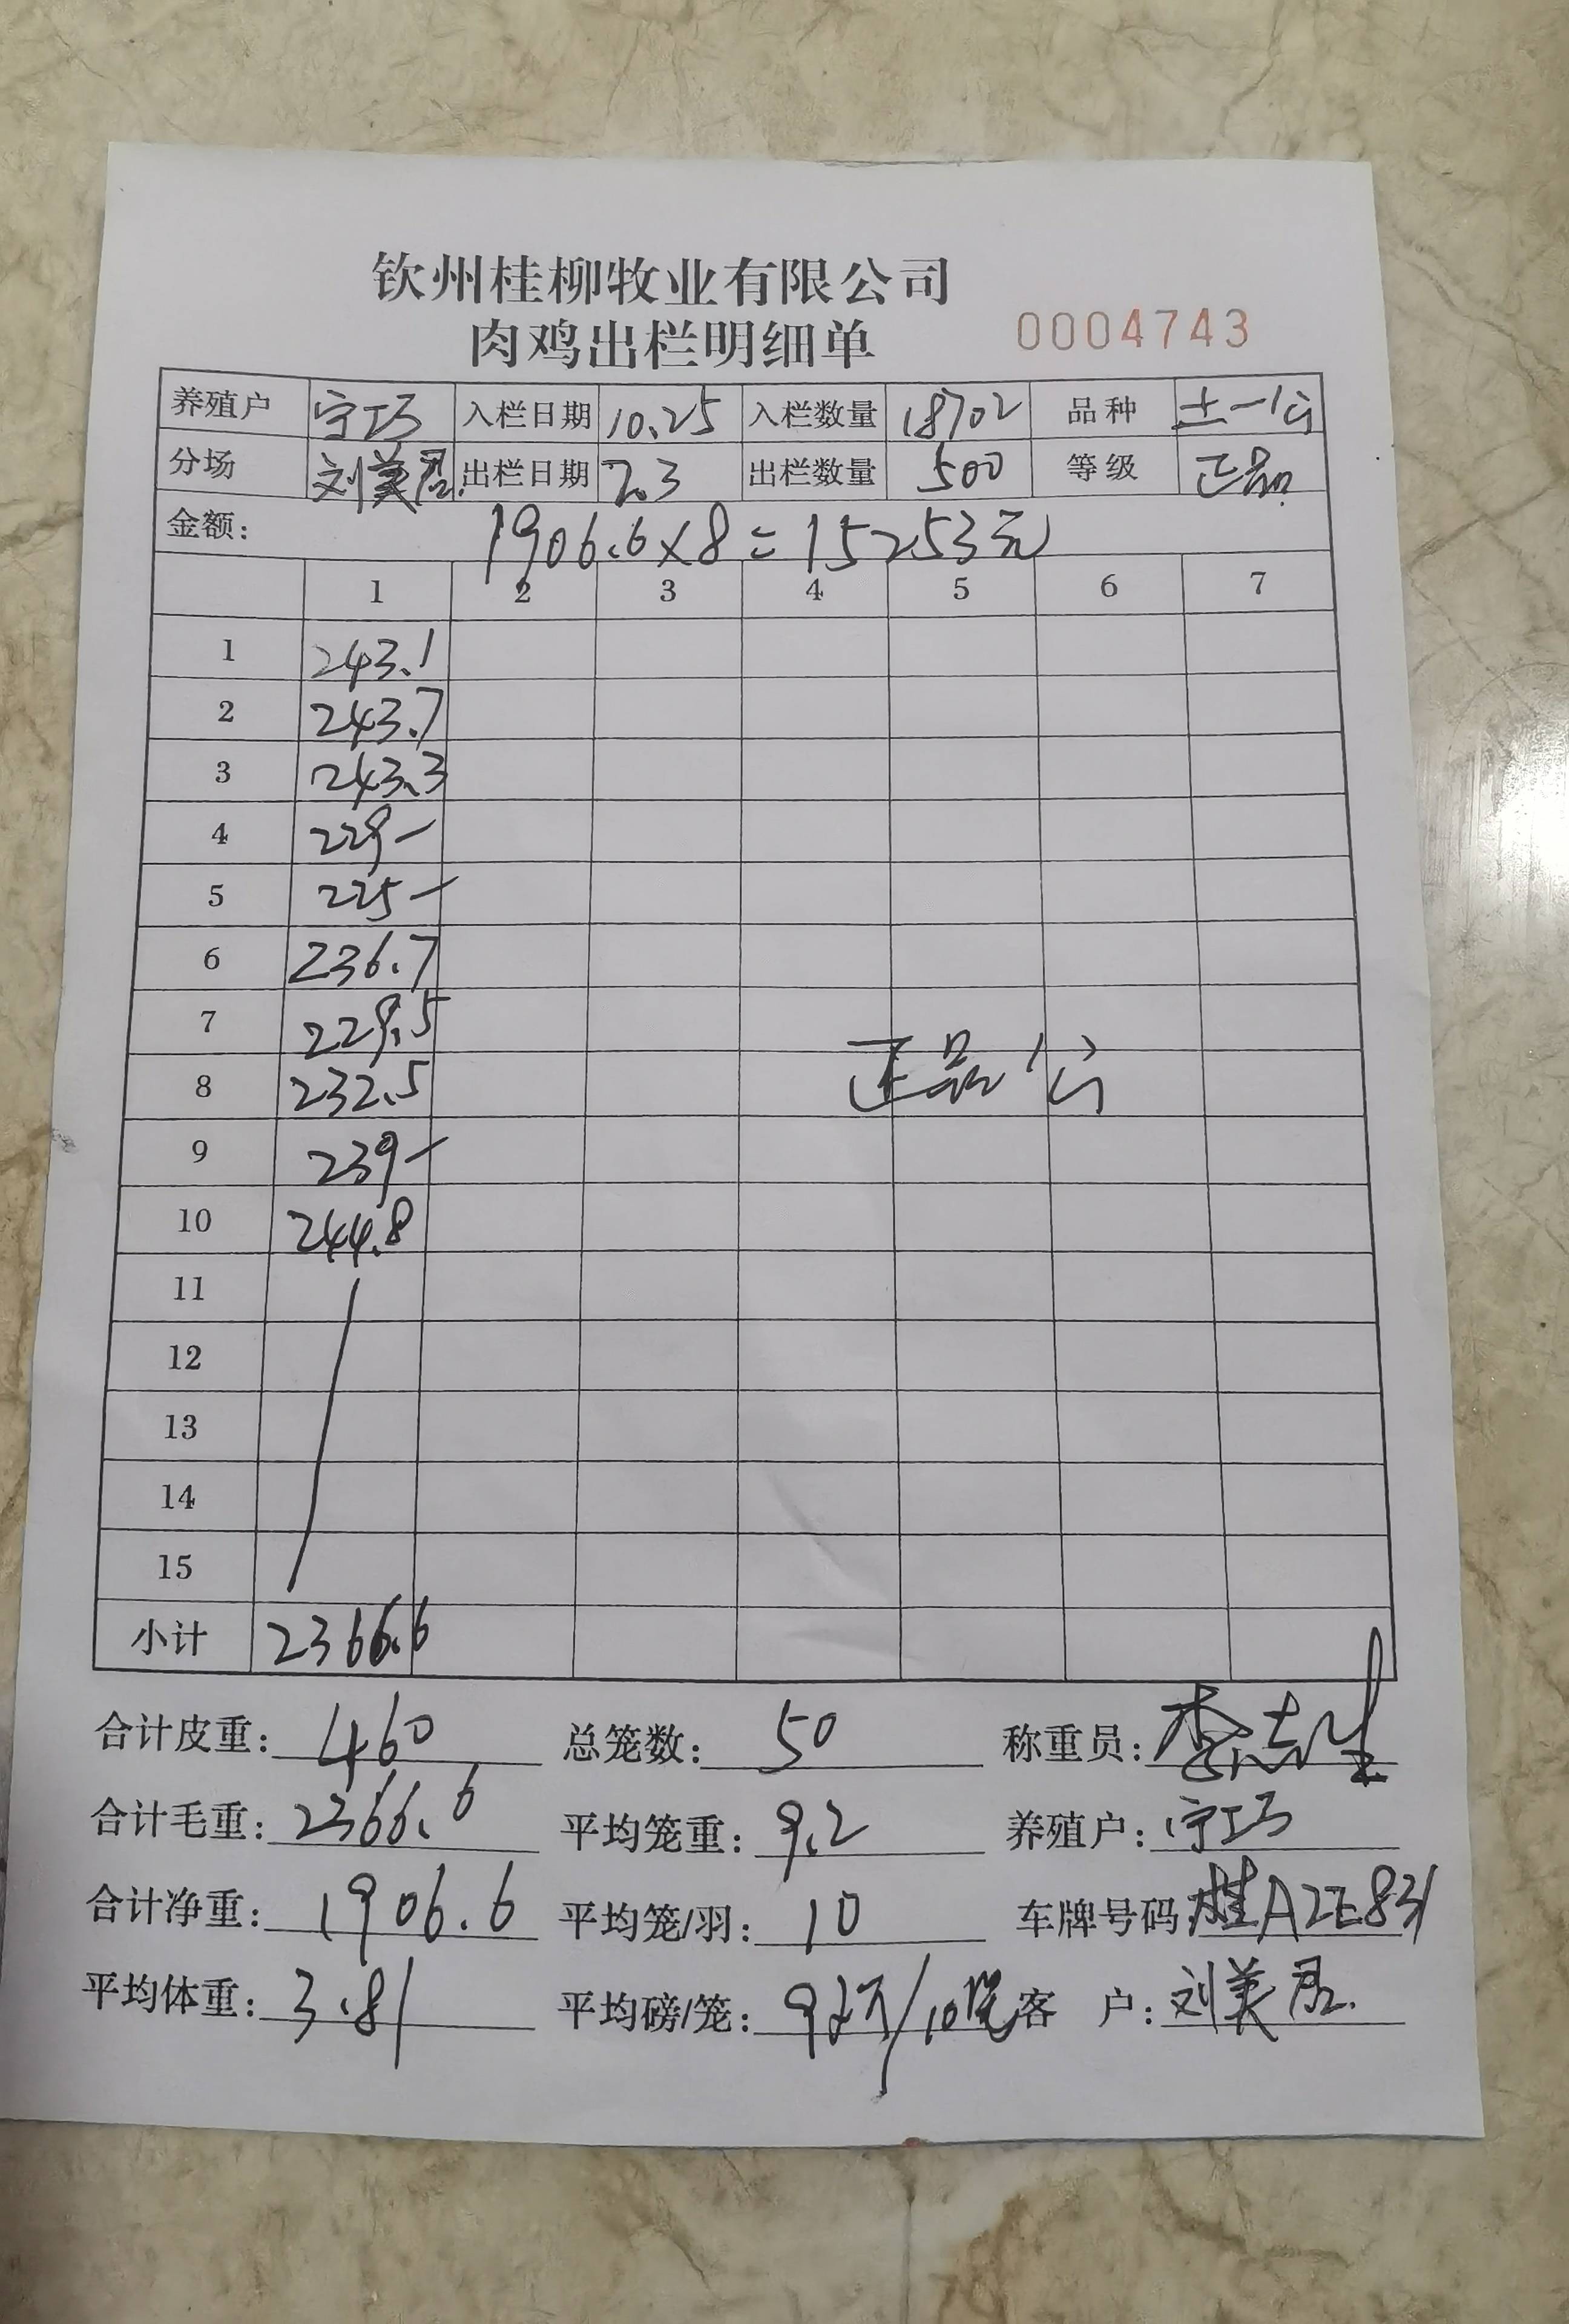 钦州桂柳牧业有限公司
肉鸡出栏明细单 0004743
养殖户 宁巧 入栏日期 10.25 入栏数量 18702 品种 土一公
分场 刘美君 出栏日期 2.3 出栏数量 500 等级 正品
金额: 1906.6×8=15253元
1 2 3 4 5 6 7
1 243.1
2 243.7
3 243.3
4 229-
5 225-
6 236.7
7 229.5
8 232.5
正品公
9 239-
10 244.8
11
12
13
14
15
小计 2366.6
合计皮重: 460 总笼数: 50 称重员: 李志生
合计毛重: 2366.6 平均笼重: 9.2 养殖户: 宁巧
合计净重: 1906.6 平均笼/羽: 10 车牌号码: 桂A2E831
平均体重: 3.81 平均磅/笼: 92斤/10笼 客户: 刘美君